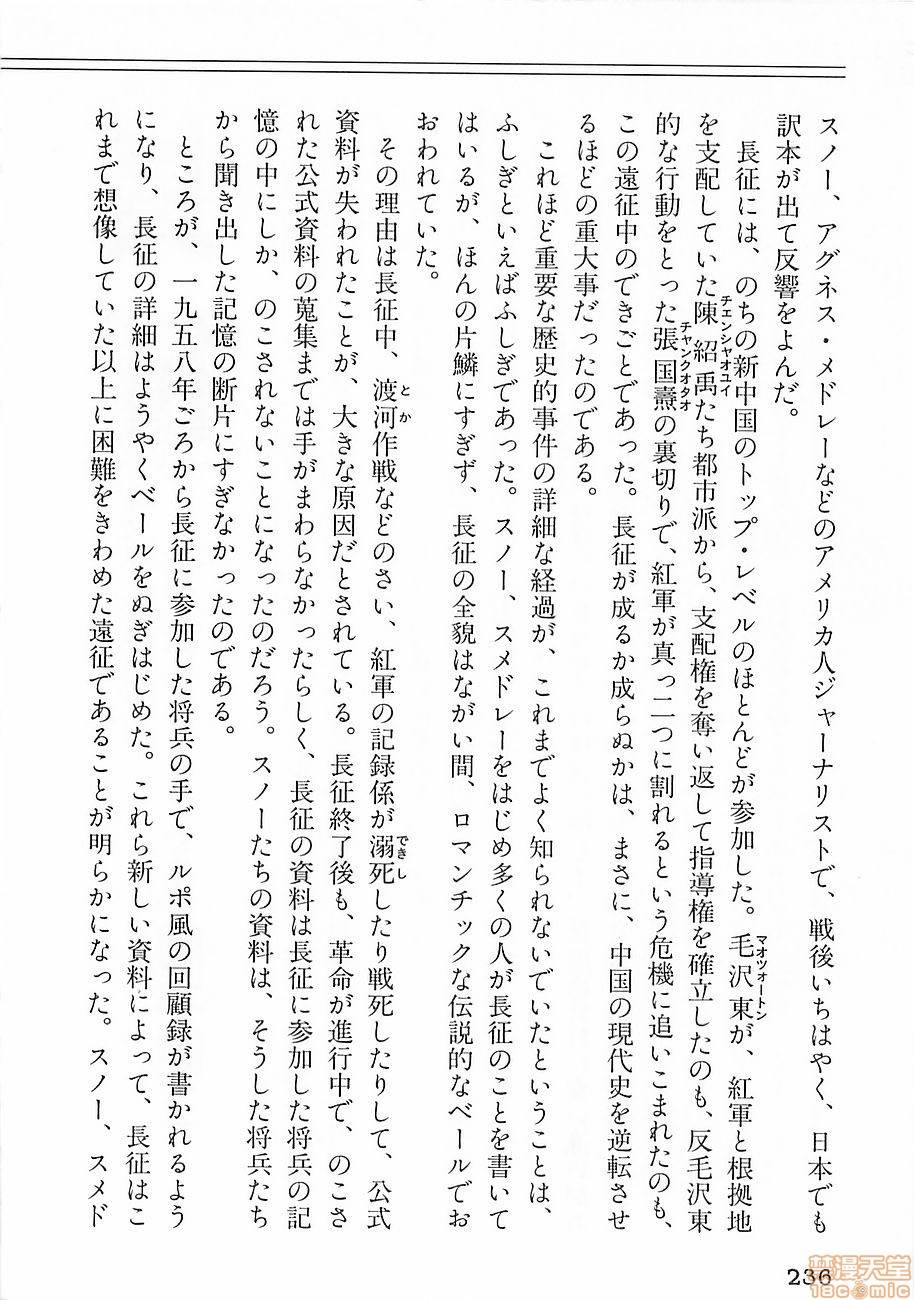 スノー、アグネス・メドレーなどのアメリカ人ジャーナリストで、戦後いちはやく、日本でも
訳本が出て反響をよんだ。
長征には、のちの新中国のトップ・レベルのほとんどが参加した。毛沢東が、紅軍と根拠地
マオツォートン
を支配していた陳紹禹たち都市派から、支配権を奪い返して指導権を確立したのも、反毛沢東
チェンシャオユイ
的な行動をとった張国燾の裏切りで、紅軍が真っ二つに割れるという危機に追いこまれたのも、
チャンクオタオ
この遠征中のできごとであった。長征が成るか成らぬかは、まさに、中国の現代史を逆転させ
るほどの重大事だったのである。
これほど重要な歴史的事件の詳細な経過が、これまでよく知られないでいたということは、
ふしぎといえばふしぎであった。スノー、スメドレーをはじめ多くの人が長征のことを書いて
はいるが、ほんの片鱗にすぎず、長征の全貌はながい間、ロマンチックな伝説的なベールでお
おわれていた。
その理由は長征中、渡河作戦などのさい、紅軍の記録係が溺死したり戦死したりして、公式
とか
できし
資料が失われたことが、大きな原因だとされている。長征終了後も、革命が進行中で、のこさ
れた公式資料の蒐集までは手がまわらなかったらしく、長征の資料は長征に参加した将兵の記
憶の中にしか、のこされないことになったのだろう。スノーたちの資料は、そうした将兵たち
から聞き出した記憶の断片にすぎなかったのである。
ところが、一九五八年ごろから長征に参加した将兵の手で、ルポ風の回顧録が書かれるよう
になり、長征の詳細はようやくベールをぬぎはじめた。これら新しい資料によって、長征はこ
れまで想像していた以上に困難をきわめた遠征であることが明らかになった。スノー、スメド
236
禁漫天堂
18comic